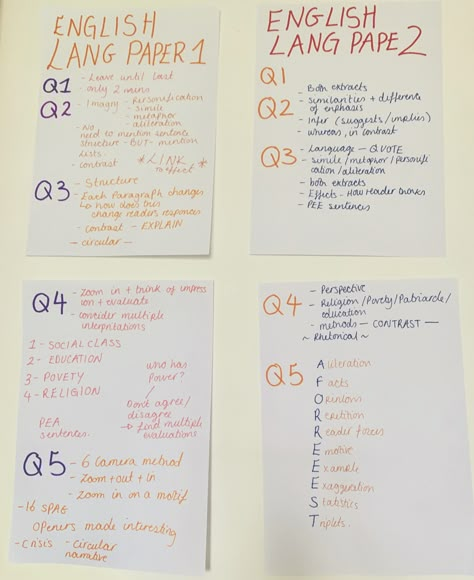 ENGLISH
LANG PAPER 1
Q1 - Leave until last
- only 2 mins
Q2 - Imagry - Personification
- simile
- metaphor
- aliteration
- No need to mention sentence
structure - BUT - mention
lists.
- contrast * LINK *
to effect
Q3 - Structure
- Each Paragraph changes
↳ how does this
change readers responses
- contrast - EXPLAIN
- circular -
ENGLISH
LANG PAPE 2
Q1
- Both extracts
Q2 - similarities + differences
of enphasis
- Infer (suggests/implies)
- whereas, in contrast
Q3 - Language - QUOTE
- simile/metaphor/personifi
cation/aliteration
- both extracts
- Effects - How reader knows
- PEE sentences
Q4 - Zoom in + think of impress
ion + evaluate
- consider multiple
interpritations
1 - SOCIAL CLASS
2 - EDUCATION
3 - POVETY
4 - RELIGION
who has
Power?
/
Don't agree/
disagree
→ find multiple
evaluations
PEA
sentences.
Q5 - 6 Camera method
- Zoom + out + in
- Zoom in on a motif
- 16 SPAG
Openers made interesting
- Crisis - circular
narrative
Q4 - Perspective
- Religion/Povety/Patriarcle/
education
- methods - CONTRAST -
~ Rhetorical ~
Q5 Aliteration
Facts
Opinions
Repitition
Reader forces
Emotive
Example
Exaggeration
Statistics
Triplets.